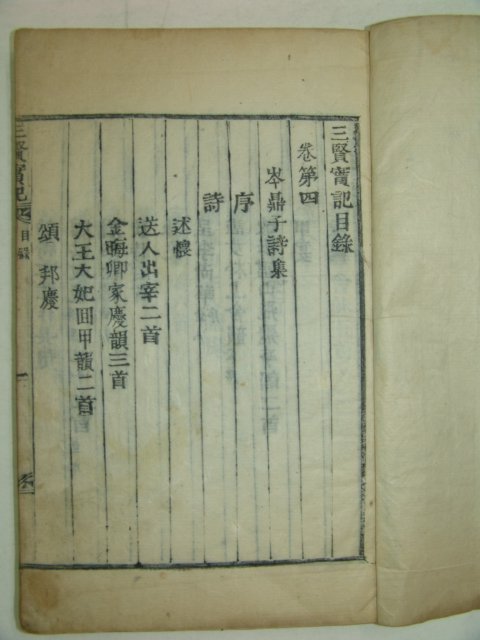 三賢實記目錄
卷第四
岑鼎子詩集
序
詩
述懷
送人出宰二首
金晦卿家慶韻三首
大王大妃回甲韻二首
頌邦慶
三賢實記
目錄